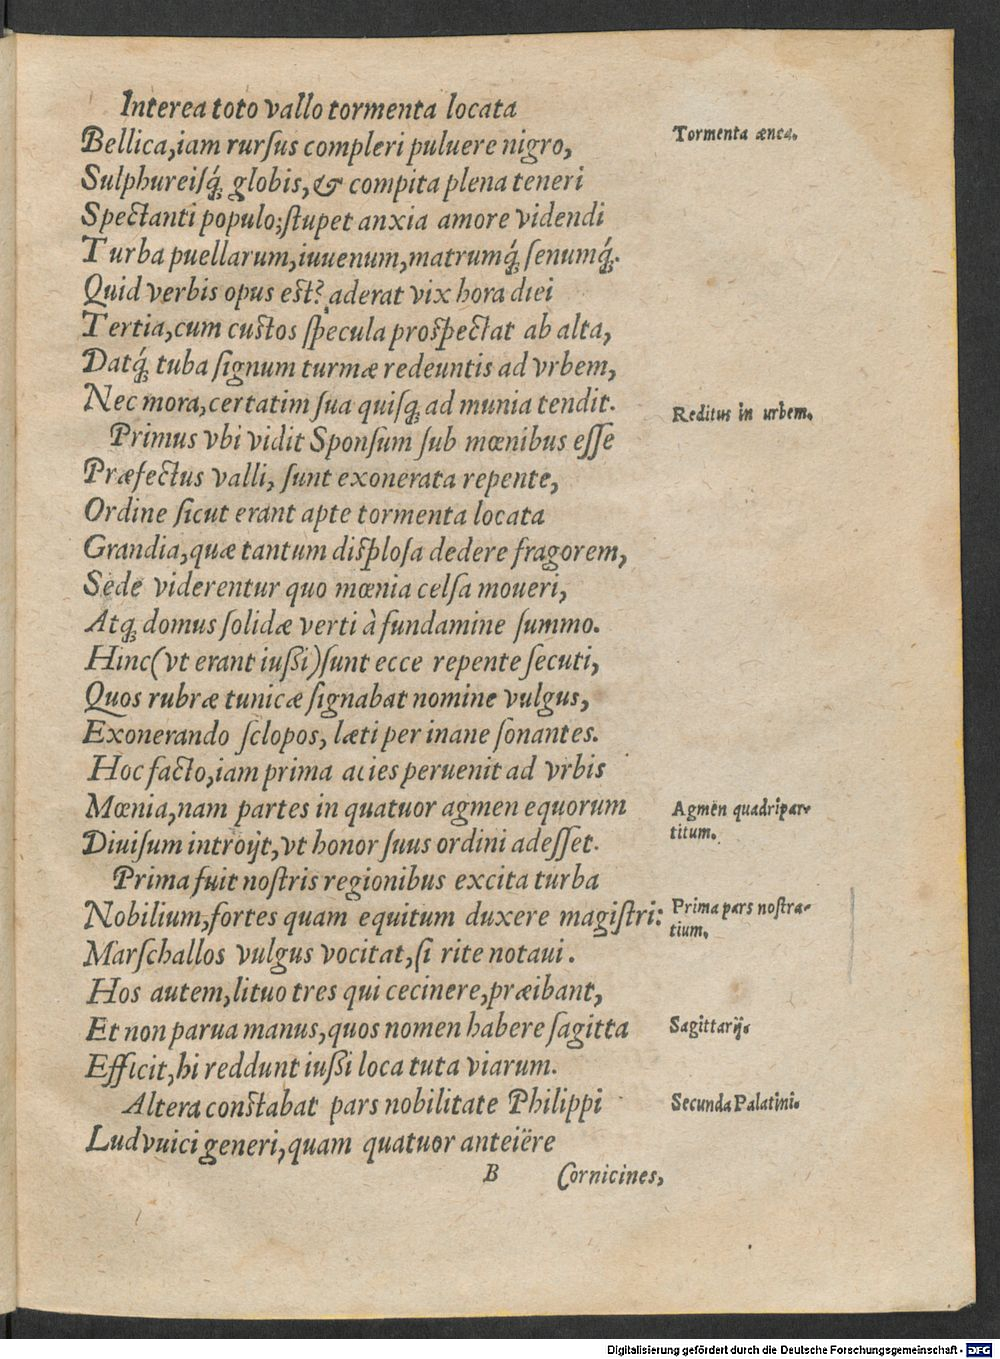 Interea toto vallo tormenta locata
Bellica,iam rurſus compleri puluere nigro,
Tormenta ænea.
Sulphureiſq́; globis,& compita plena teneri
Spectanti populo;ſtupet anxia amore videndi
Turba puellarum,iuuenum,matrumq́; ſenumq́;.
Quid verbis opus est? aderat vix hora diei
Tertia,cum custos ſpecula proſpectat ab alta,
Datq́; tuba ſignum turmæ redeuntis ad vrbem,
Nec mora,certatim ſua quiſq; ad munia tendit.
Reditus in urbem.
Primus vbi vidit Sponſum ſub mœnibus eſſe
Præfectus valli, ſunt exonerata repente,
Ordine ſicut erant apte tormenta locata
Grandia,quæ tantum diſploſa dedere fragorem,
Sede viderentur quo mœnia celſa moueri,
Atq; domus ſolidæ verti à fundamine ſummo.
Hinc(vt erant iußi)ſunt ecce repente ſecuti,
Quos rubræ tunicæ ſignabat nomine vulgus,
Exonerando ſclopos, læti per inane ſonantes.
Hoc facto,iam prima acies peruenit ad vrbis
Mœnia,nam partes in quatuor agmen equorum
Agmen quadripar-
titum.
Diuiſum introijt,vt honor ſuus ordini adeſſet.
Prima fuit noſtris regionibus excita turba
Nobilium,fortes quam equitum duxere magiſtri:
Prima pars noſtra-
tium.
Marſchallos vulgus vocitat,ſi rite notaui.
Hos autem,lituo tres qui cecinere,præibant,
Et non parua manus,quos nomen habere ſagitta
Sagittarij.
Efficit,hi reddunt iußi loca tuta viarum.
Altera constabat pars nobilitate Philippi
Secunda Palatini.
Ludvuici generi,quam quatuor anteiëre
B
Cornicines,
Digitalisierung gefördert durch die Deutsche Forschungsgemeinschaft - DFG